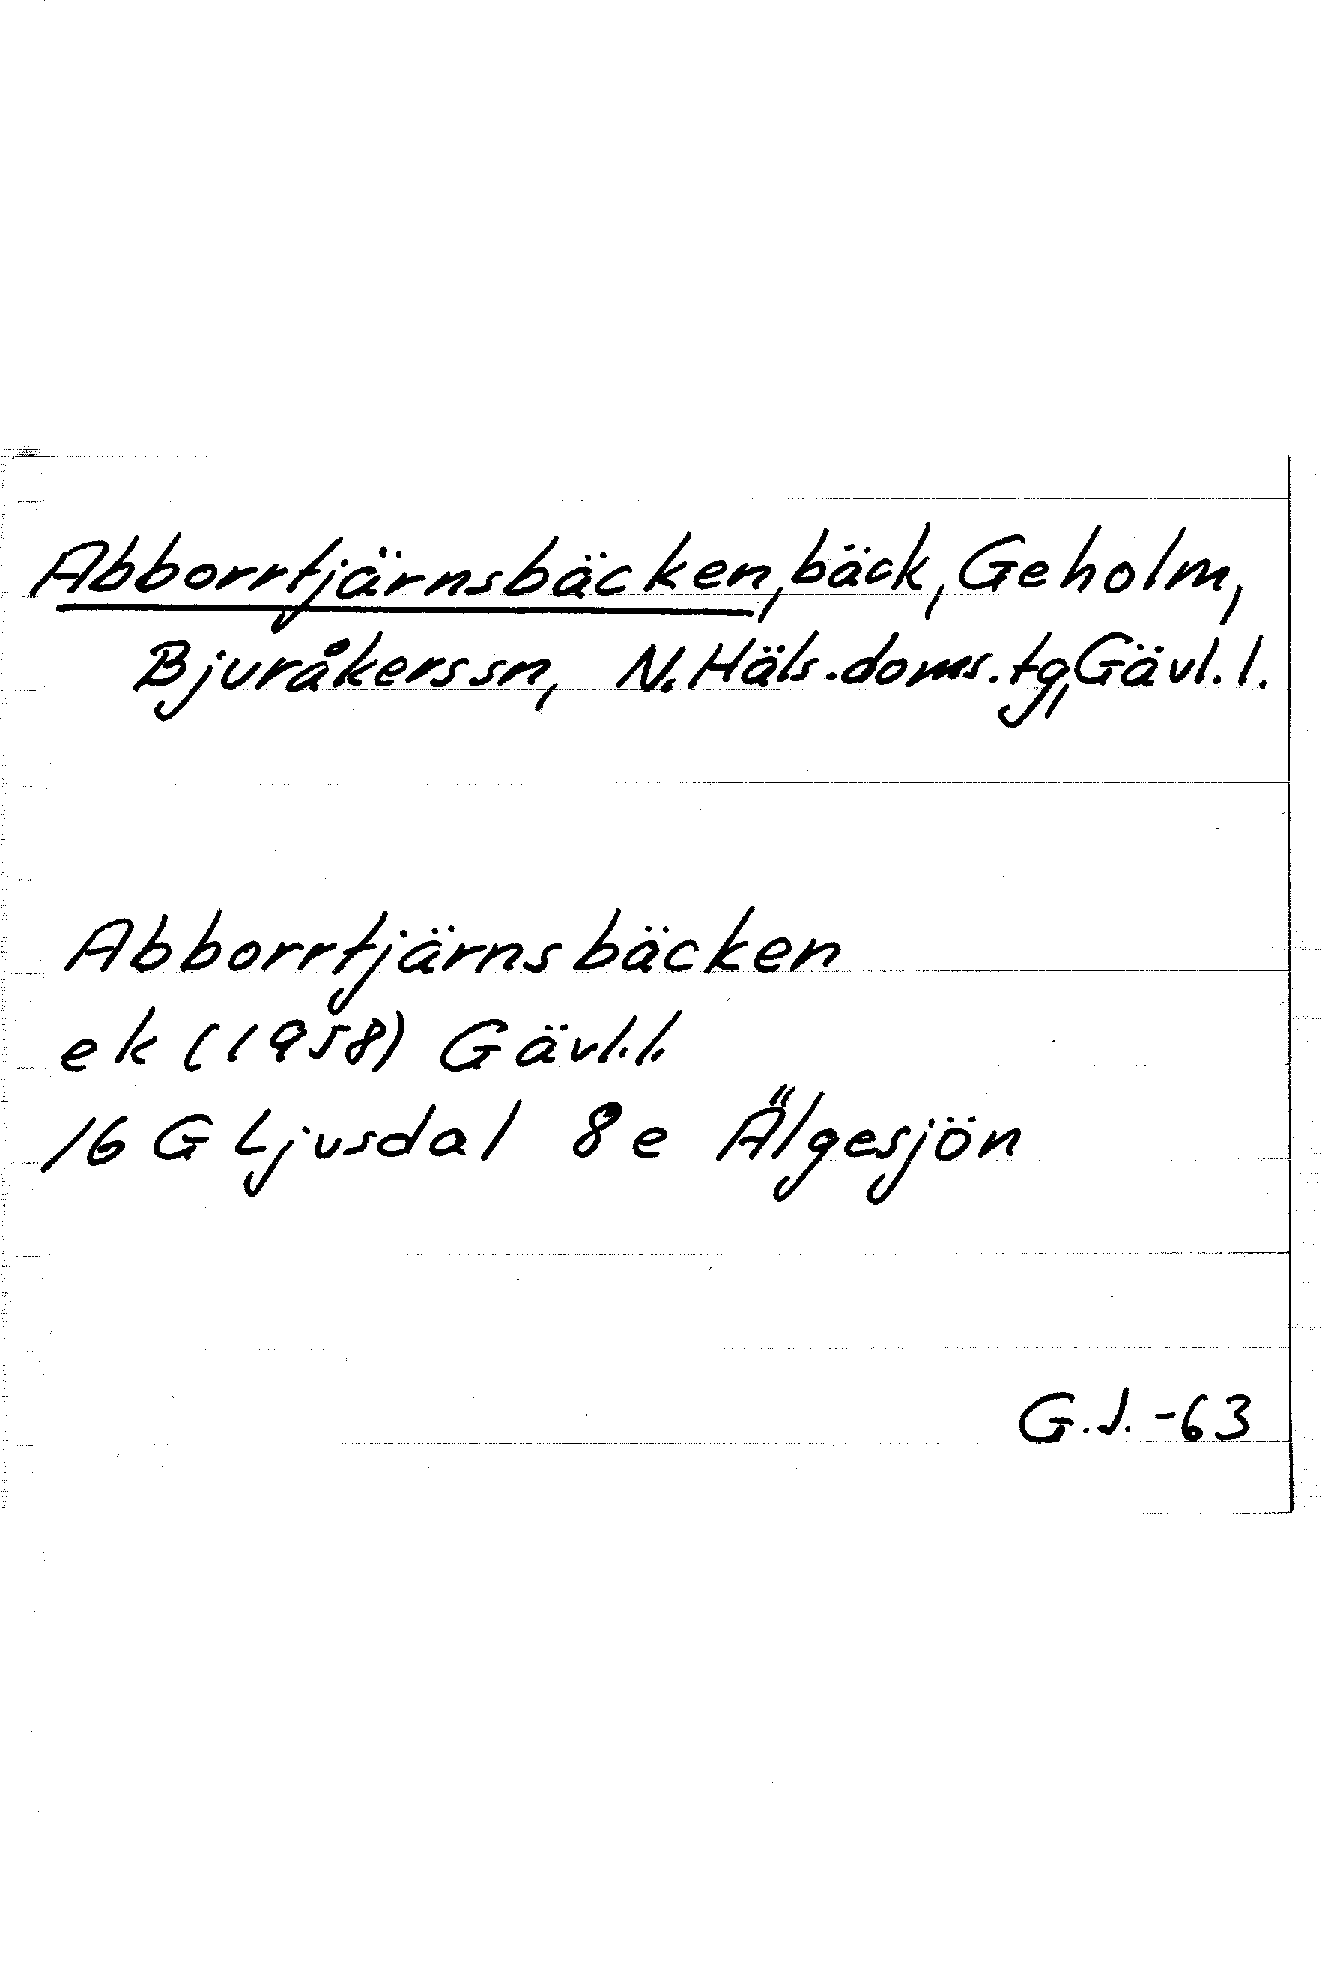 Abborrtjärnsbäcken, bäck, Geholm,
Bjuråkers sn, N. Häls. doms. tg, Gävl. l.
Abborrtjärnsbäcken
ek (1958) Gävl. l.
16 G Ljusdal 8 e Älgesjön
G.J. -63